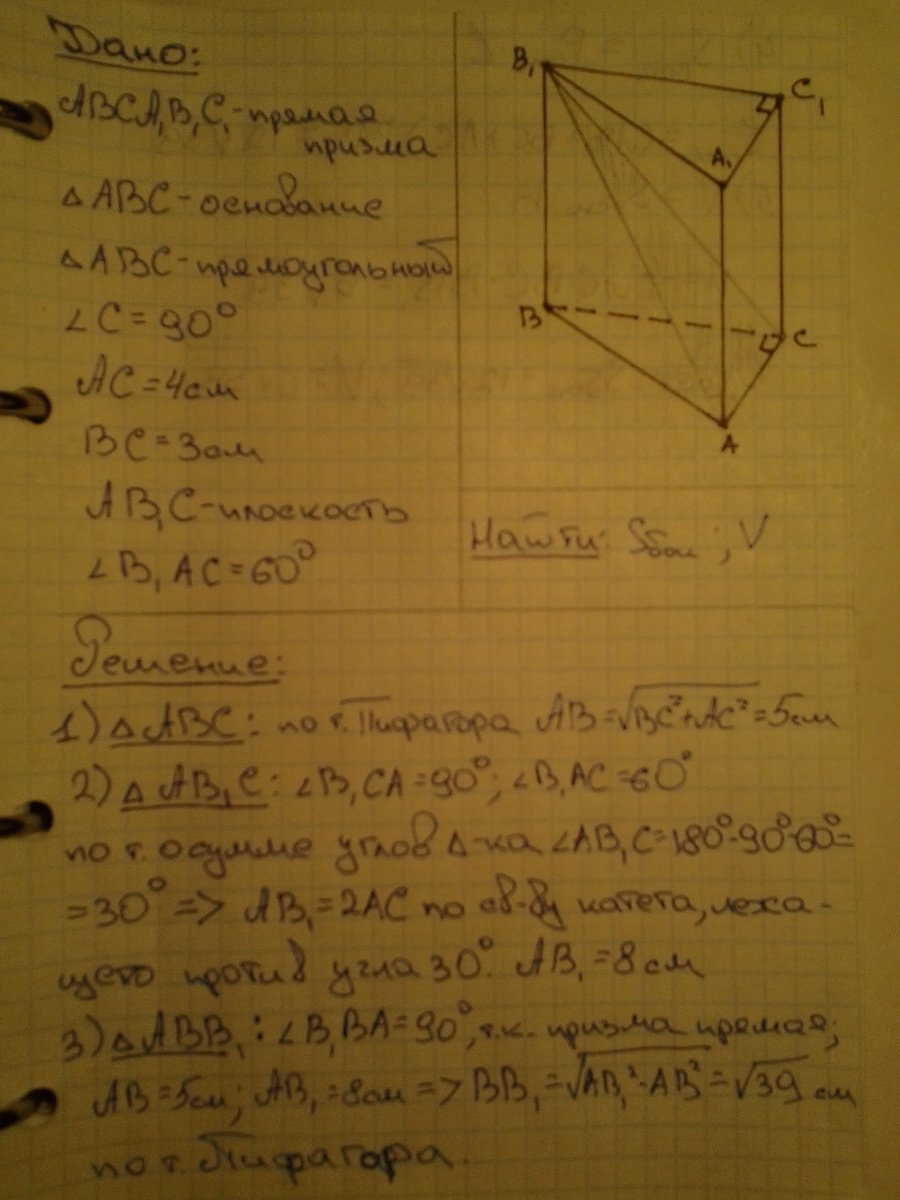 Дано:
ABCA₁B₁C₁-прямая
призма
△ABC-основание
△ABC-прямоугольный
∠C=90°
AC=4см
BC=3см
AB₁C-плоскость
∠B₁AC=60°
B₁
C₁
A₁
B
C
A
Найти: Sбок; V
Решение:
1) △ABC: по т. Пифагора AB=√BC²+AC²=5см
2) △AB₁C: ∠B₁CA=90°; ∠B₁AC=60°
по т. о сумме углов △-ка ∠AB₁C=180°-90°-60°=
=30° => AB₁=2AC по св-ву катета, лежа-
щего против угла 30°. AB₁=8см
3) △ABB₁: ∠B₁BA=90°, т.к. призма прямая;
AB=5см; AB₁=8см => BB₁=√AB₁²-AB²=√39 см
по т. Пифагора.